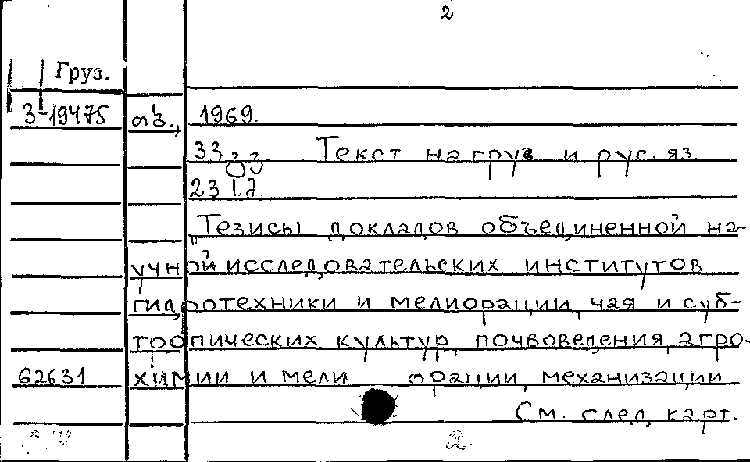 2
Груз.
3-19475 1969.
33 Текст на груз и рус. яз.
23
„Тезисы докладов объединенной на-
учной исследовательских институтов
гидротехники и мелиорации, чая и суб-
тропических культур, почвоведения, агро-
62631 химии и мелиорации, механизации
См. след. карт.
2